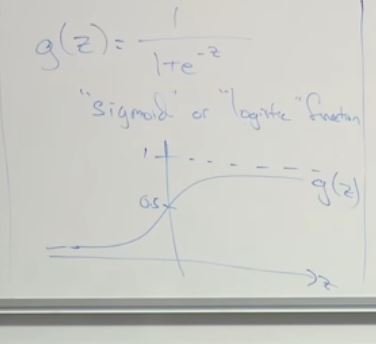 g(z) = 1/(1+e^-z)
"sigmoid" or "logistic" function
1
0.5
g(z)
z